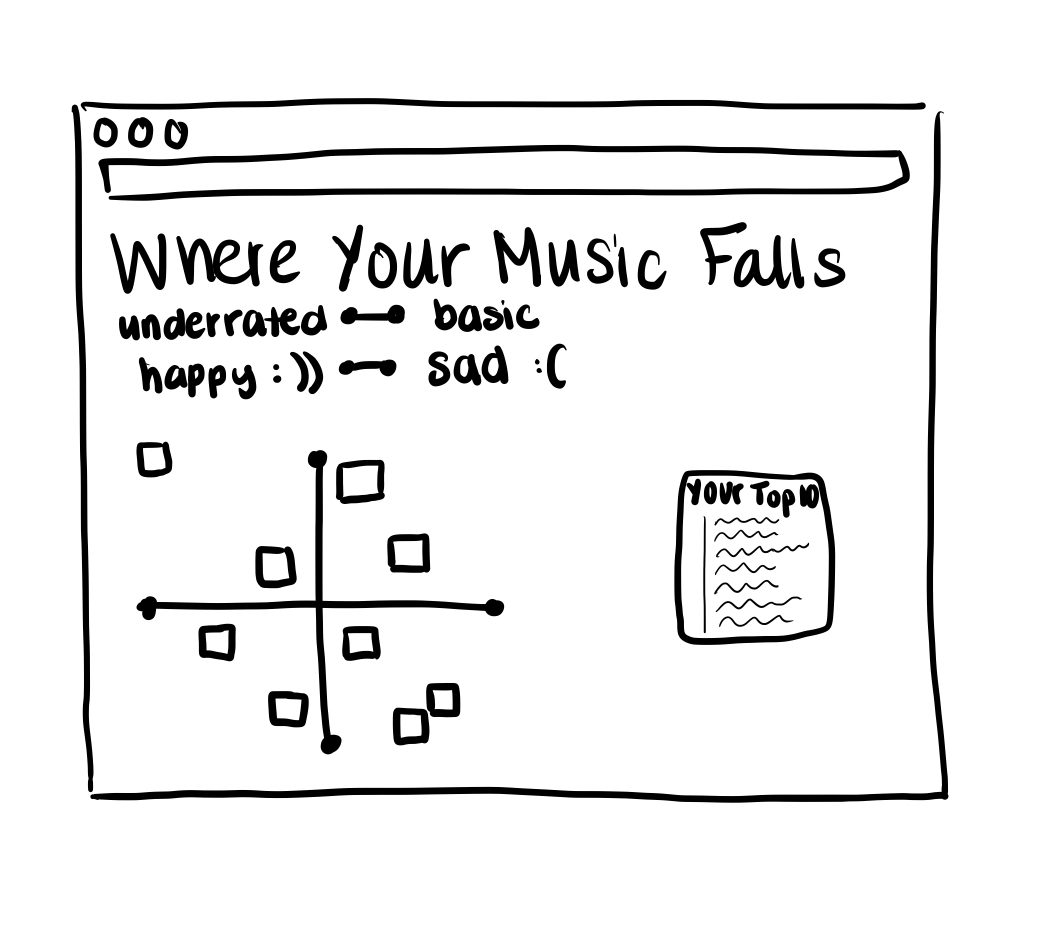 Where Your Music Falls
underrated basic
happy :)) sad :(
Your Top 10